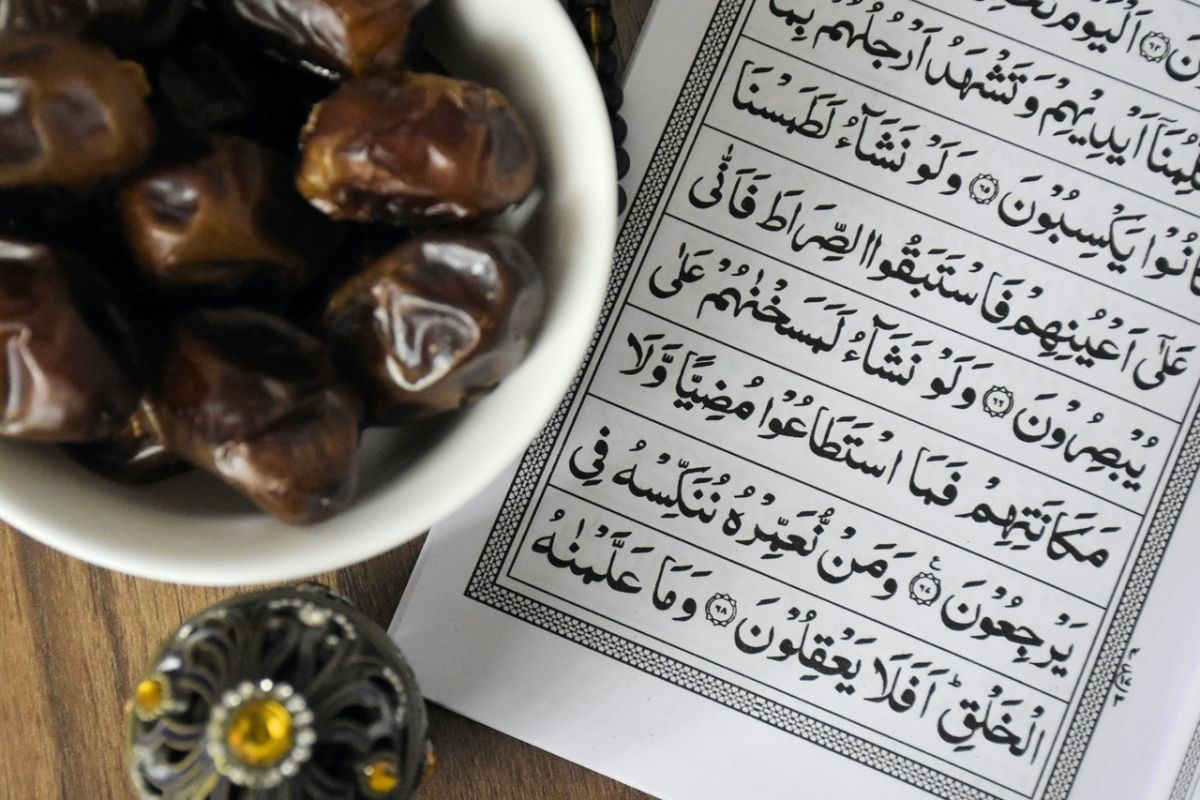 اَلْيَوْمَ
اَيْدِيْهِمْ وَ تَشْهَدُ اَرْجُلُهُمْ بِمَا
كَانُوْا يَكْسِبُوْنَ ۝٦٥ وَلَوْ نَشَآءُ لَطَمَسْنَا
عَلٰۤى اَعْيُنِهِمْ فَاسْتَبَقُوا الصِّرَاطَ فَاَنّٰى
يُبْصِرُوْنَ ۝٦٦ وَلَوْ نَشَآءُ لَمَسَخْنٰهُمْ عَلٰى
مَكَانَتِهِمْ فَمَا اسْتَطَاعُوْا مُضِيًّا وَّلَا
يَرْجِعُوْنَ ۝٦٧ وَمَنْ نُّعَمِّرْهُ نُنَكِّسْهُ فِى
الْخَلْقِ ؕ اَفَلَا يَعْقِلُوْنَ ۝٦٨ وَمَا عَلَّمْنٰهُ